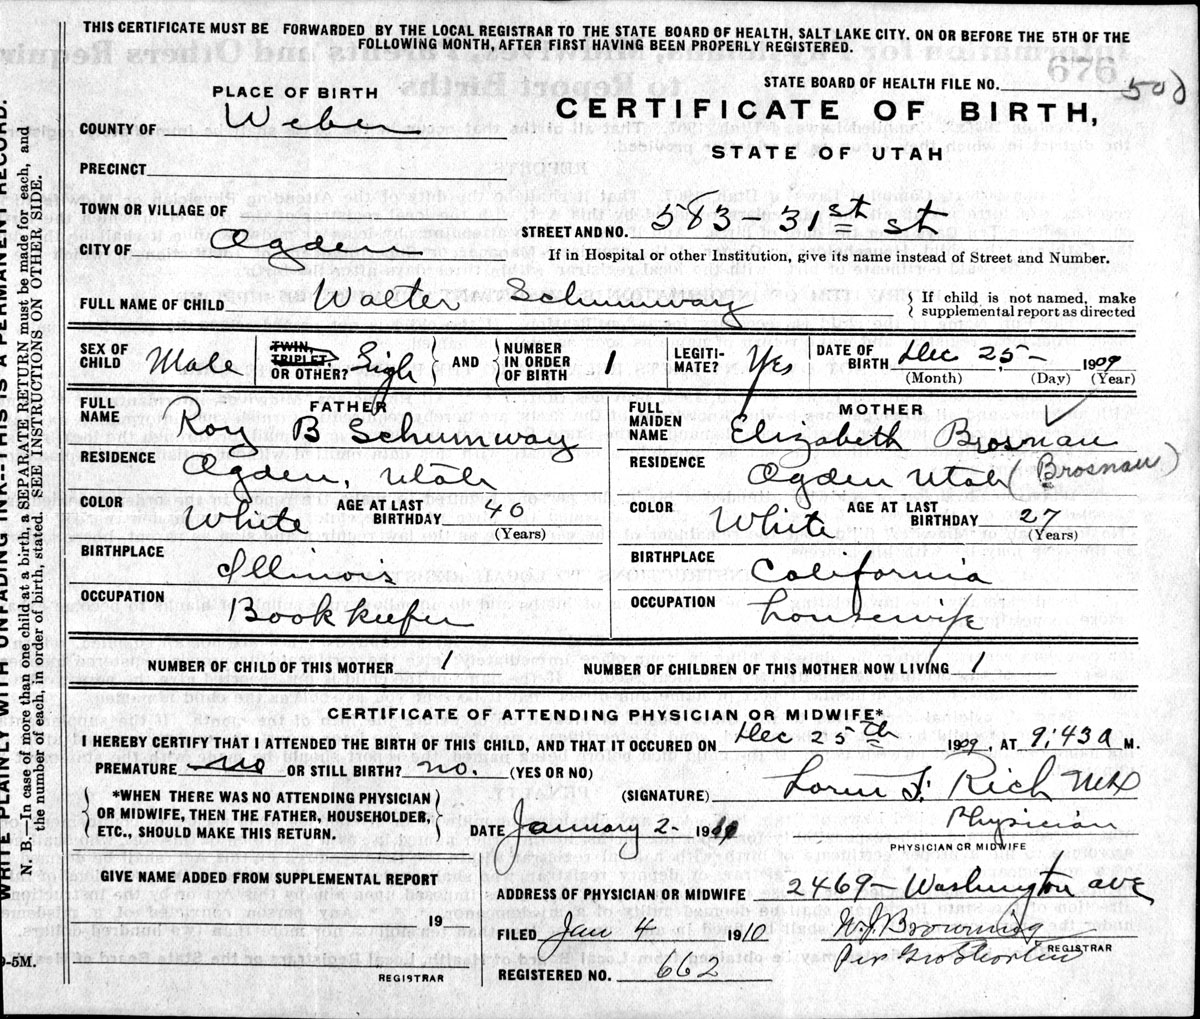 THIS CERTIFICATE MUST BE FORWARDED BY THE LOCAL REGISTRAR TO THE STATE BOARD OF HEALTH, SALT LAKE CITY. ON OR BEFORE THE 5TH OF THE
FOLLOWING MONTH, AFTER FIRST HAVING BEEN PROPERLY REGISTERED.
STATE BOARD OF HEALTH FILE NO.
PLACE OF BIRTH
CERTIFICATE OF BIRTH,
STATE OF UTAH
COUNTY OF Weber
PRECINCT
TOWN OR VILLAGE OF
CITY OF Ogden
STREET AND NO. 583 - 31st st
If in Hospital or other Institution, give its name instead of Street and Number.
FULL NAME OF CHILD Walter Schumway
If child is not named, make
supplemental report as directed
SEX OF CHILD Male
TWIN, TRIPLET, OR OTHER? Sigh
AND NUMBER IN ORDER OF BIRTH 1
LEGITI-MATE? Yes
DATE OF BIRTH Dec 25- 1909
(Month) (Day) (Year)
FATHER
FULL NAME Roy B Schumway
RESIDENCE Ogden, Utah
COLOR White
AGE AT LAST BIRTHDAY 40
(Years)
BIRTHPLACE Illinois
OCCUPATION Bookkeeper
MOTHER
FULL MAIDEN NAME Elizabeth Brosnau
RESIDENCE Ogden Utah (Brosnau)
COLOR White
AGE AT LAST BIRTHDAY 27
(Years)
BIRTHPLACE California
OCCUPATION housewife
NUMBER OF CHILD OF THIS MOTHER 1
NUMBER OF CHILDREN OF THIS MOTHER NOW LIVING 1
CERTIFICATE OF ATTENDING PHYSICIAN OR MIDWIFE*
I HEREBY CERTIFY THAT I ATTENDED THE BIRTH OF THIS CHILD, AND THAT IT OCCURED ON Dec 25th 1909, AT 9:43 a M.
PREMATURE no OR STILL BIRTH? no. (YES OR NO)
*WHEN THERE WAS NO ATTENDING PHYSICIAN
OR MIDWIFE, THEN THE FATHER, HOUSEHOLDER,
ETC., SHOULD MAKE THIS RETURN.
(SIGNATURE) Loren F. Rich MD
Physician
PHYSICIAN OR MIDWIFE
DATE January 2- 19
GIVE NAME ADDED FROM SUPPLEMENTAL REPORT
19
REGISTRAR
ADDRESS OF PHYSICIAN OR MIDWIFE 2469 Washington ave
FILED Jan 4 1910
W. J. Browning
REGISTRAR
Per
REGISTERED NO. 662
WRITE PLAINLY WITH UNFADING INK--THIS IS A PERMANENT RECORD.
N. B.—In case of more than one child at a birth, a SEPARATE RETURN must be made for each, and
the number of each, in order of birth, stated. SEE INSTRUCTIONS ON OTHER SIDE.